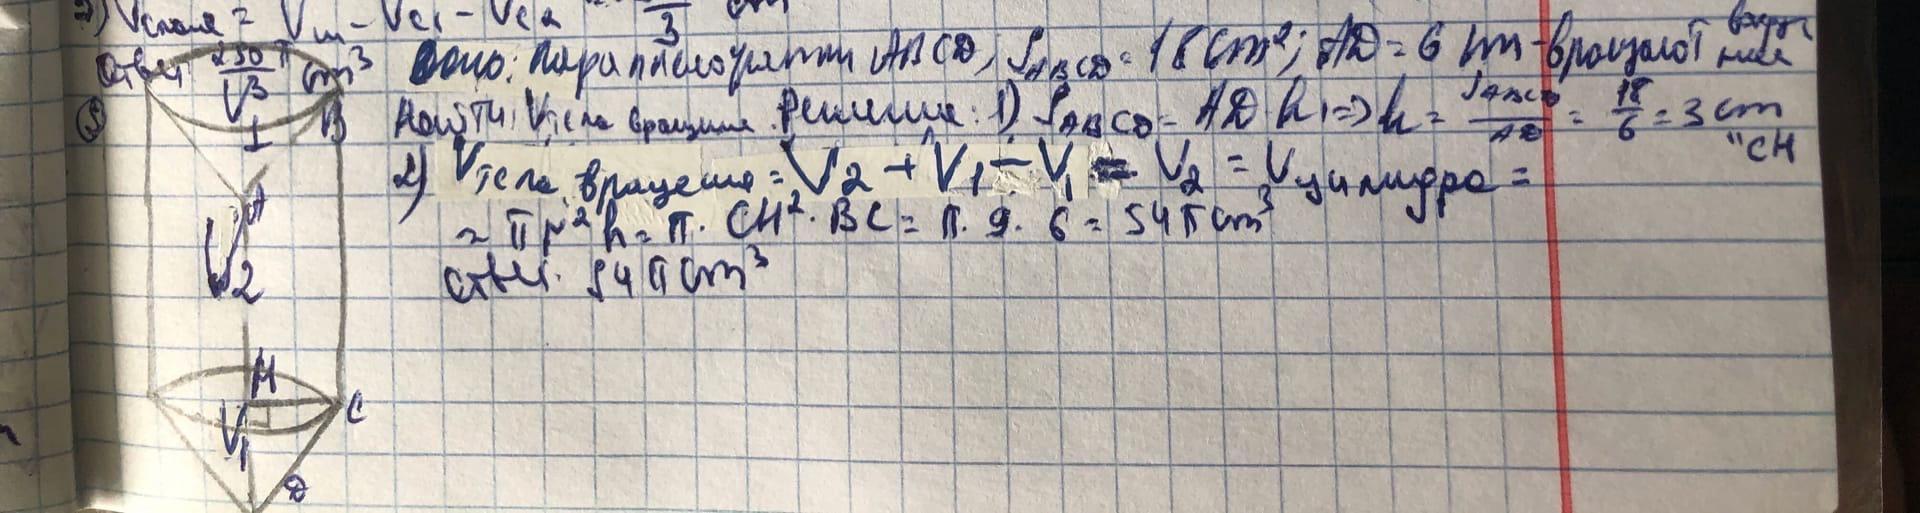 2) Vтела = Vц - Vс1 - Vс2 = /3 cm
Ответ: 250π/√3 cm³
Дано: Параллелограмм ABCD; SABCD = 18 cm²; AD = 6 cm - вращают вокруг нее
5 Найти: Vтела вращения. Решение: 1) SABCD = AD · h1 => h = SABCD/AD = 18/6 = 3 cm
"CH
2) Vтела вращения = V2 + V1 - V1 = V2 = Vцилиндра =
= πr²h = π · CH² · BC = π · 9 · 6 = 54π cm³
Ответ: 54π cm³
1
B
A
V2
H
C
V1
D